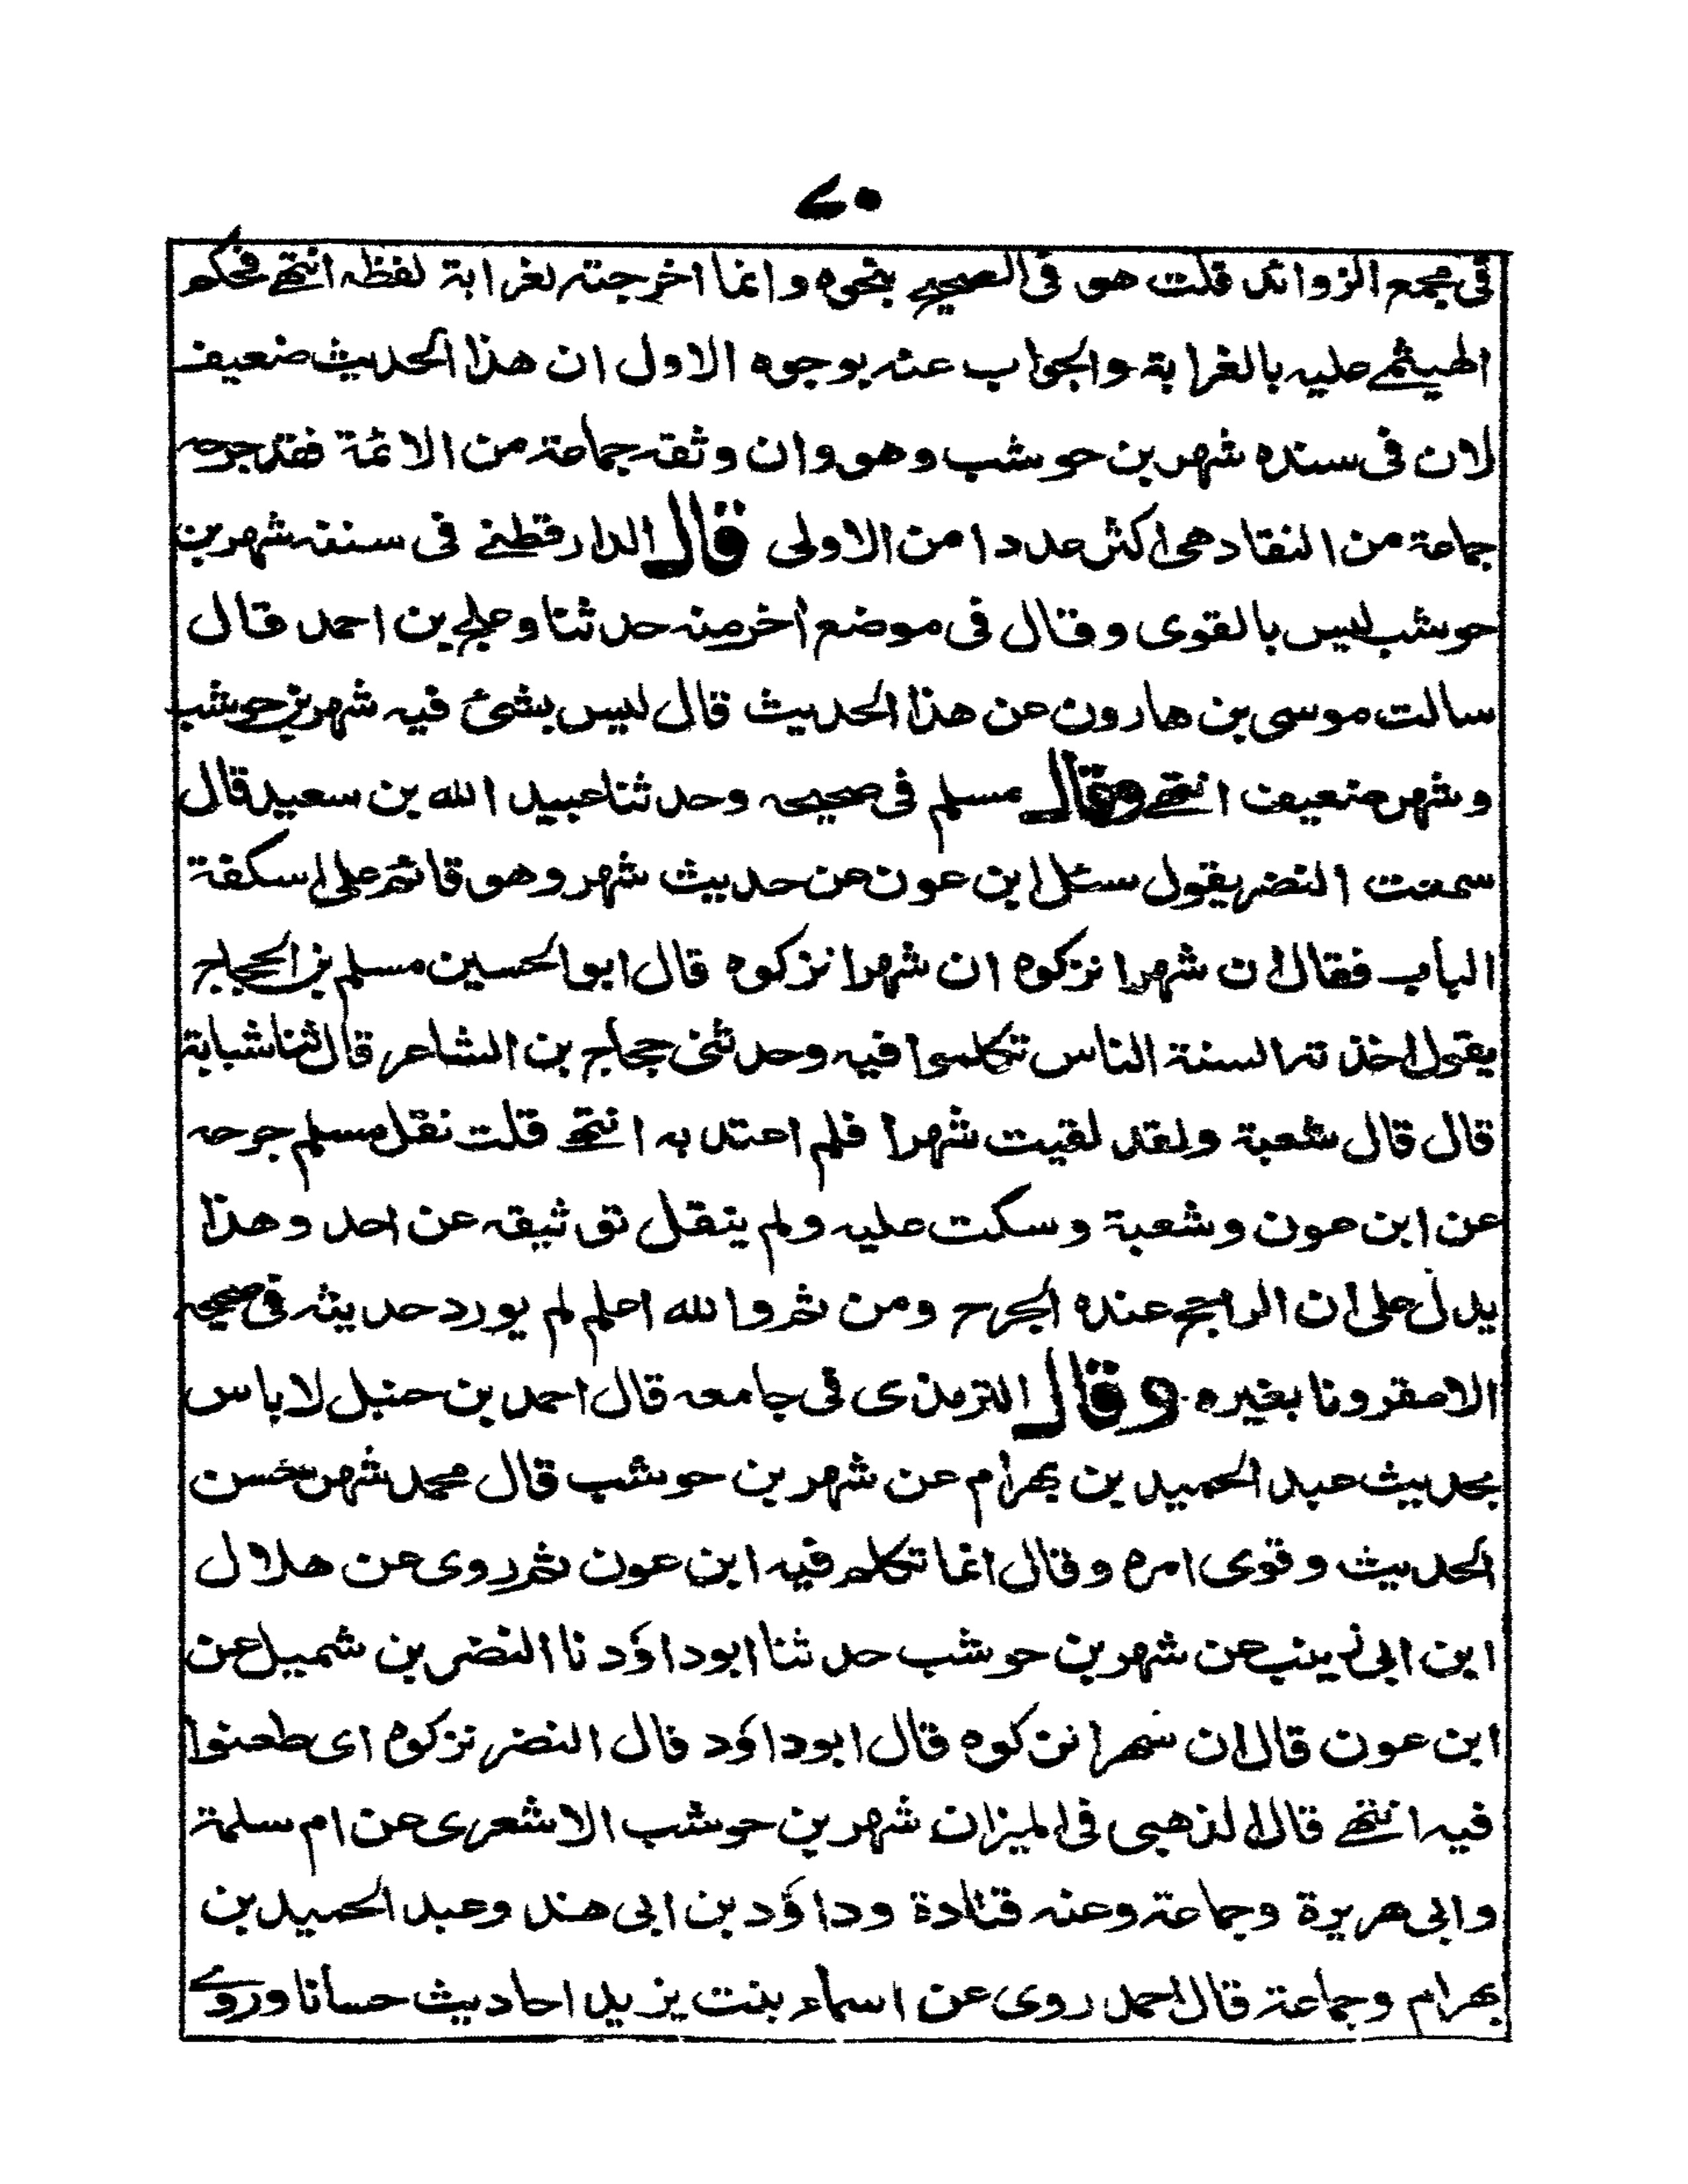 ۷۰
فی مجمع الزوائد قلت هو فی الصحیح بنحوه وانما اخرجته لغرابة لفظه انتهے فحکم
الهیثمے علیه بالغرابة والجواب عنه بوجوه الاول ان هذا الحدیث ضعیف
لان فی سنده شهر بن حوشب وهو وان وثقه جماعة من الائمة فقد جرحه
جماعة من النقاد هی اکثر عددا من الاولی قال الدارقطنے فی سننه شهر بن
حوشب لیس بالقوی وقال فی موضع اخر منه حدثنا دعلج بن احمد قال
سالت موسی بن هارون عن هذا الحدیث قال لیس بشئ فیه شهر بن حوشب
وشهر ضعیف انتهے وقال مسلم فی صحیحه وحدثنا عبید الله بن سعید قال
سمعت النضر یقول سئل ابن عون عن حدیث شهر وهو قائم علی اسکفة
الباب فقال ان شهرا نزکوه ان شهرا نزکوه قال ابو الحسین مسلم بن الحجاج
یقول اخذته السنة الناس تکلموا فیه وحدثنی حجاج بن الشاعر قال ثنا شبابة
قال قال شعبة ولقد لقیت شهرا فلم اعتد به انتهے قلت نقل مسلم جرحه
عن ابن عون وشعبة وسکت علیه ولم ینقل توثیقه عن احد وهذا
یدل علی ان الراجح عنده الجرح ومن ثم والله اعلم لم یورد حدیثه فی صحیحه
الا مقرونا بغیره وقال الترمذی فی جامعه قال احمد بن حنبل لا باس
بحدیث عبد الحمید بن بهرام عن شهر بن حوشب قال محمد شهر حسن
الحدیث وقوی امره وقال انما تکلم فیه ابن عون ثم روی عن هلال
ابن ابی زینب عن شهر بن حوشب حدثنا ابوداؤد نا النضر بن شمیل عن
ابن عون قال ان شهرا نزکوه قال ابوداؤد قال النضر نزکوه ای طعنوا
فیه انتهے قال الذهبی فی المیزان شهر بن حوشب الاشعری عن ام سلمة
وابی هریرة وجماعة وعنه قتادة وداؤد بن ابی هند وعبد الحمید بن
بهرام وجماعة قال احمد روی عن اسماء بنت یزید احادیث حسانا وروے